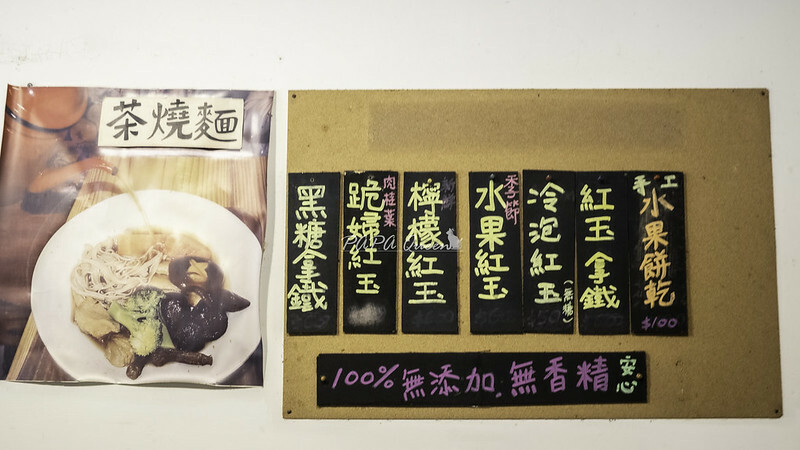 茶燒麵
手工
水果餅乾
$100
紅玉拿鐵
冷泡紅玉
(無糖)
季節
水果紅玉
檸檬紅玉
肉桂葉
跪婦紅玉
黑糖拿鐵
100%無添加.無香精
安心
PAPA Queen